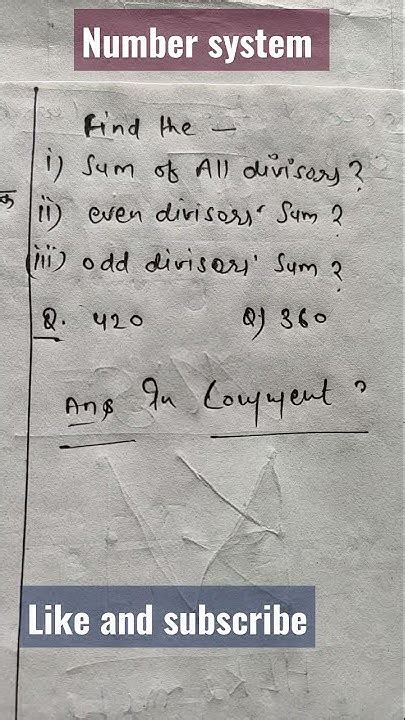 Number system
Find the —
i) Sum of All divisors?
ii) even divisors' Sum?
(iii) odd divisors' Sum?
Q. 420 Q) 360
Ans In Comment?
Like and subscribe